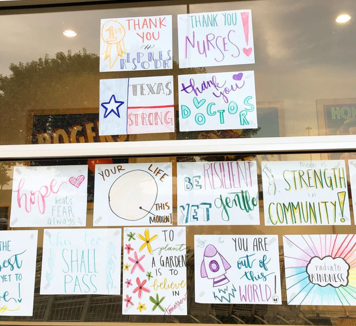 THANK
YOU
THANK YOU
NURSES!
TEXAS
STRONG
thank
you
DOCTORS
hope
beats
FEAR
always
YOUR LIFE
THIS
MOMENT
BE RESILIENT
YET gentle
STRENGTH
in
COMMUNITY!
THE
YET TO
SHALL
PASS
TO
plant
A GARDEN
IS TO
believe
IN
YOU ARE
out OF
this
WORLD!
radiate
KINDNESS